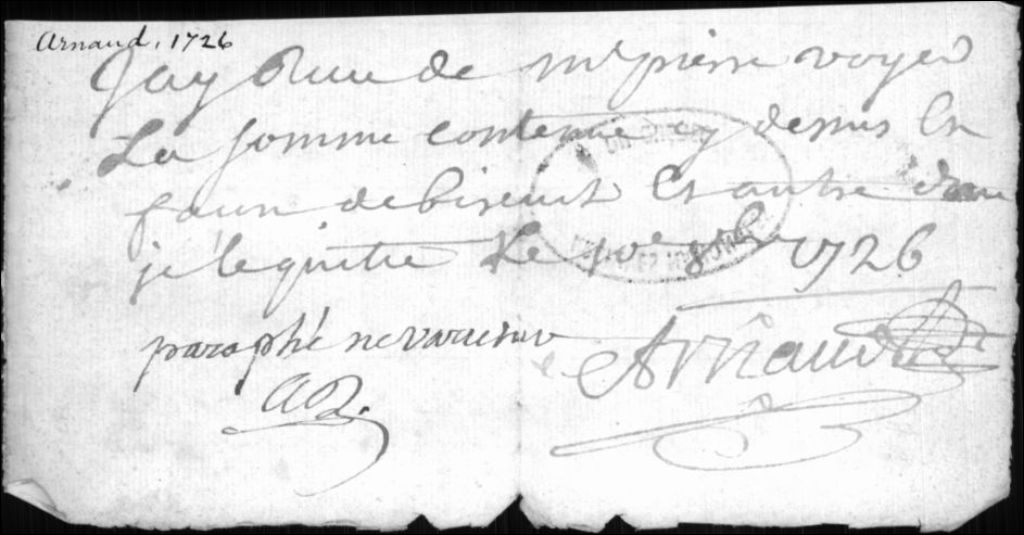 Arnaud, 1726
Jay Receu de mr pierre voyer
La somme contenue cy dessus En
farine de biscuit Et autre dont
je le quitte Le 10e 8bre 1726
paraphé ne varietur
Arnaud
AR.